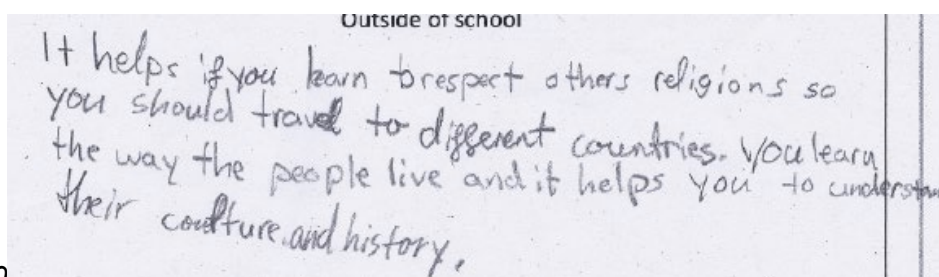 Outside of school
It helps if you learn to respect others religions so
you should travel to different countries. You learn
the way the people live and it helps you to understan
their coulture and history.